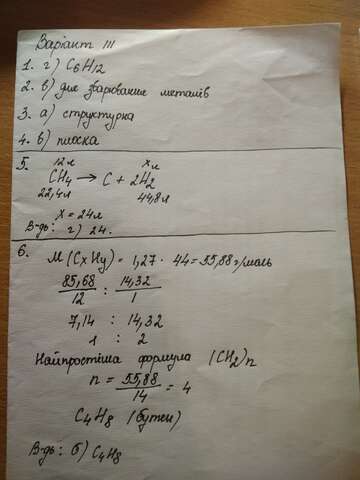 Варіант III
1. г) C6H12
2. в) для зварювання металів
3. а) структурка
4. в) плоска
5.
12л xл
CH4 → C + 2H2
22,4л 44,8л
x = 24л
В-дь: г) 24.
6.
M (CxHy) = 1,27 · 44 = 55,88 г/моль
85,68/12 : 14,32/1
7,14 : 14,32
1 : 2
Найпростіша формула (CH2)n
n = 55,88/14 = 4
C4H8 (бутен)
В-дь: б) C4H8